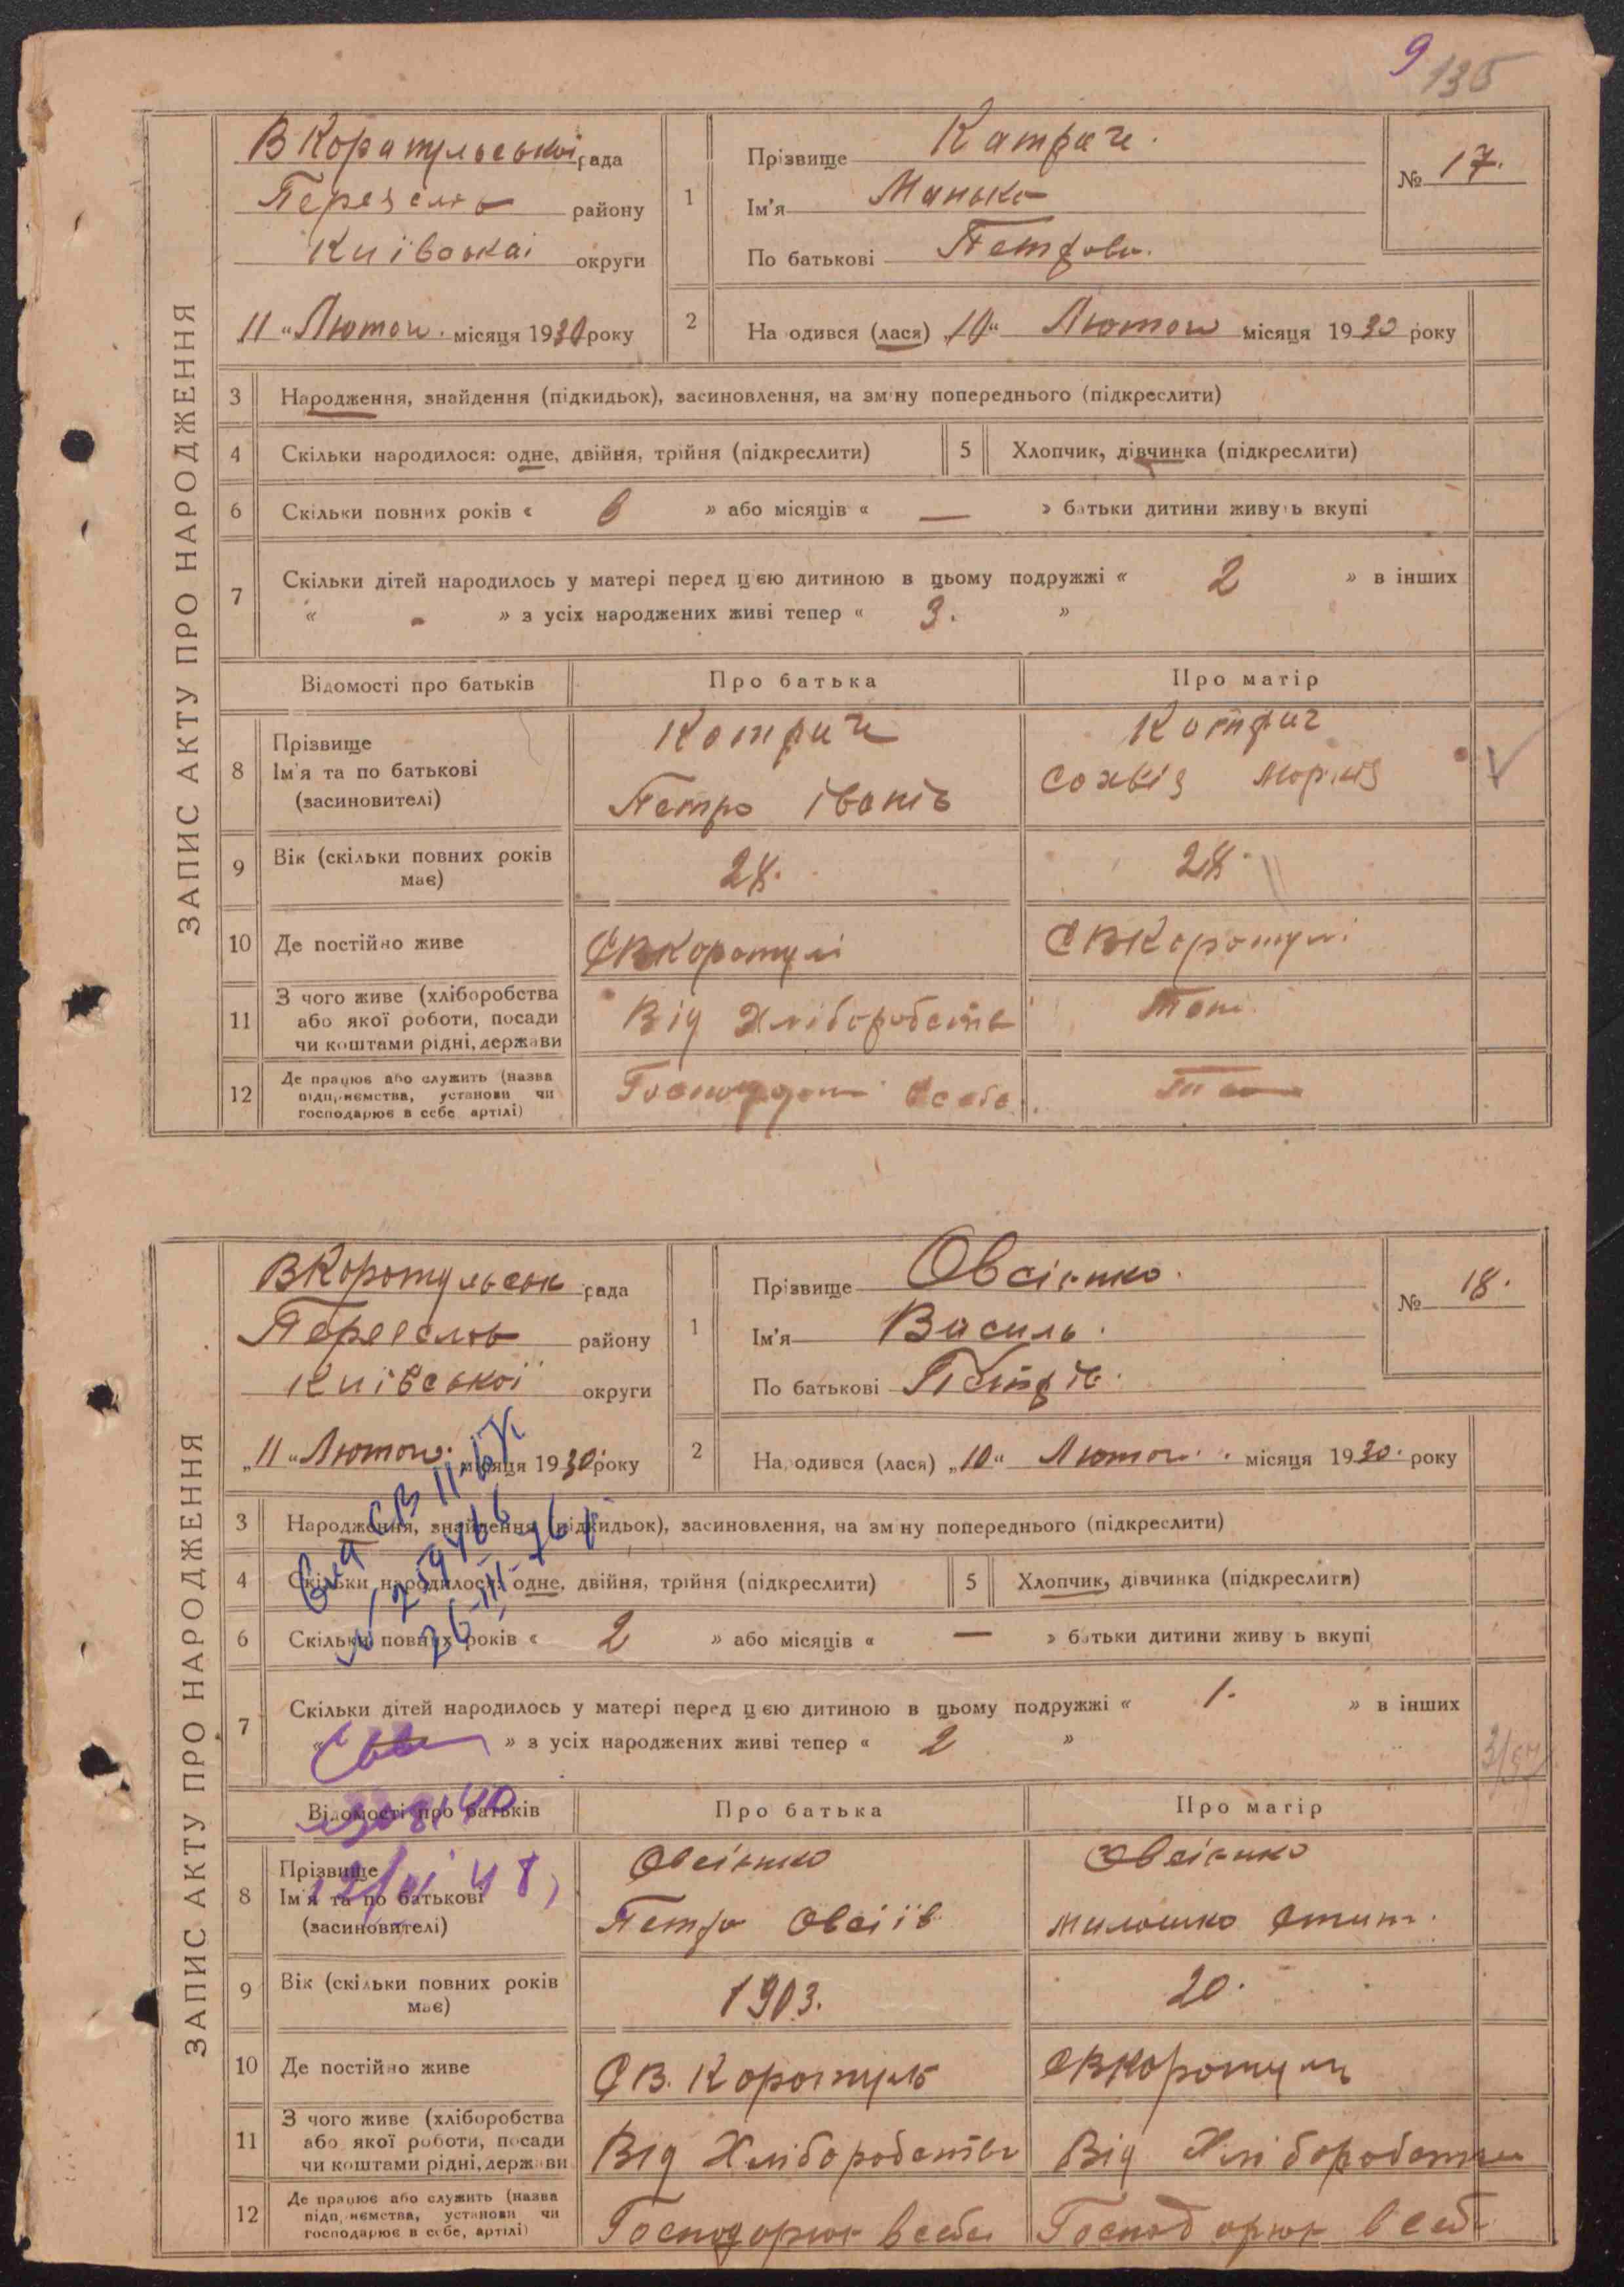 9
135
ЗАПИС АКТУ ПРО НАРОДЖЕННЯ
В Коратульської рада
Переяслав району
Київської округи
"11" Лютого місяця 1930 року
1
Прізвище Катрич.
Ім'я Манька
По батькові Петрова.
№ 17.
2
На одився (лася) "10" Лютого місяця 1930 року
3 Народження, знайдення (підкидьок), засиновлення, на зміну попереднього (підкреслити)
4 Скільки народилося: одне, двійня, трійня (підкреслити)
5 Хлопчик, дівчинка (підкреслити)
6 Скільки повних років « 6 » або місяців « — » батьки дитини живуть вкупі
7 Скільки дітей народилось у матері перед цією дитиною в цьому подружжі « 2 » в інших
« - » з усіх народжених живі тепер « 3. »
Відомості про батьків
Про батька
Про матір
8 Прізвище
Ім'я та по батькові
(засиновителі)
Котрич
Петро Іванів
Котрич
9 Вік (скільки повних років
має)
28.
28.
10 Де постійно живе
С В Коротулі
С В Коротулі
11 З чого живе (хліборобства
або якої роботи, посади
чи коштами рідні, держави
Від Хліборобства
12 Де працює або служить (назва
підприємства, установи чи
господарює в себе артілі)
ЗАПИС АКТУ ПРО НАРОДЖЕННЯ
В Коротульськ рада
Переяслов району
Київської округи
"11" Лютого місяця 1930 року
1
Прізвище Овсієнко.
Ім'я Василь.
По батькові Петрів.
№ 18.
2
На одився (лася) "10" Лютого місяця 1930 року
3 Народження, знайдення (підкидьок), засиновлення, на зміну попереднього (підкреслити)
4 Скільки народилося: одне, двійня, трійня (підкреслити)
5 Хлопчик, дівчинка (підкреслити)
6 Скільки повних років « 2 » або місяців « — » батьки дитини живу ь вкупі
7 Скільки дітей народилось у матері перед цією дитиною в цьому подружжі « 1. » в інших
« » з усіх народжених живі тепер « 2 »
Відомості про батьків
Про батька
Про матір
8 Прізвище
Ім'я та по батькові
(засиновителі)
Овсієнко
Петро Овсіїв
Овсієнко
9 Вік (скільки повних років
має)
1903.
20.
10 Де постійно живе
С В. Коротуль
С В Коротуль
11 З чого живе (хліборобства
або якої роботи, посади
чи коштами рідні, держави
Від Хліборобства
Від Хліборобства
12 Де працює або служить (назва
підприємства, установи чи
господарює в себе, артілі)
Господорює в себе
Господорює в себе